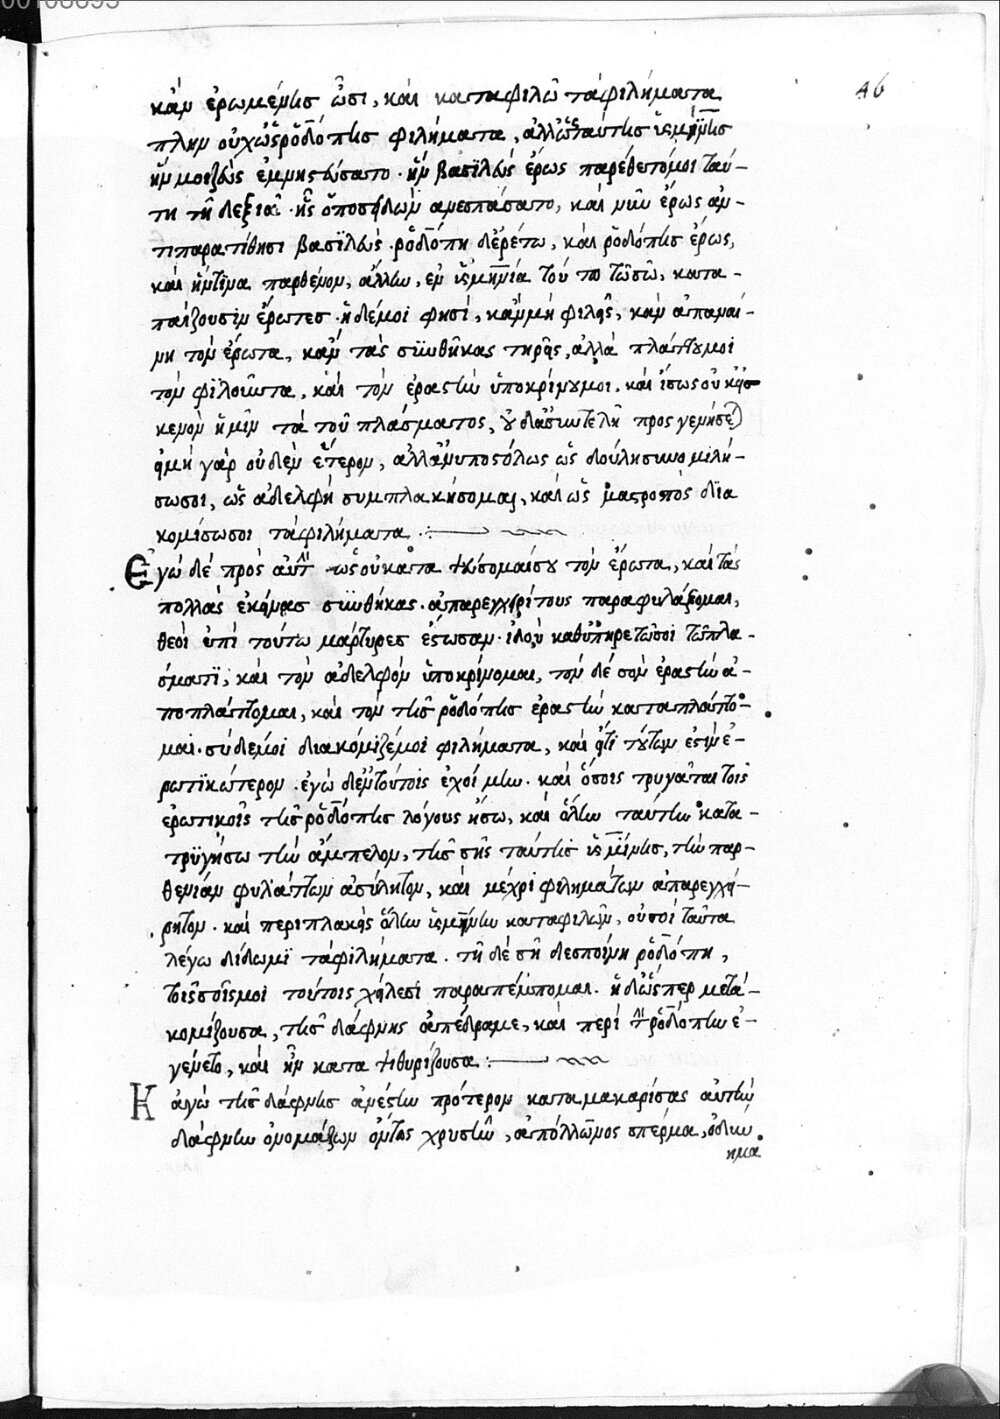 00108095
46
κἂν ἐρωμένης ὦσι, καὶ καταφιλῶ τὰ φιλήματα
πλὴν οὐχ ὡς ῥοδόπης φιλήματα, ἀλλ' ὡς ταύτης ὑσμίνης
ἣν μοι ζεὺς ἐμνηστεύσατο. ἣν βασιλεὺς ἔρως παρέθετό μοι ταύ-
τῃ τῇ δεξιᾷ. ἧς ὑπὸ σπονδῶν ἀνεσπάσατο, καὶ νῦν ἔρως ἀν-
τιπαρατίθησι βασιλεύς. ῥοδόπη δ' ἐρέτω, καὶ ῥοδόπης ἔρως,
καὶ ἥντινα παρθένον, ἄλλην, ἐν ὑσμίνη μία τοῦ σωσθένους, κατα-
παίζουσιν ἔρωτες. ἡ δέ μοι φησί, κἂν μὴ φιλῇς, κἂν ἀπαναί-
νῃ τὸν ἔρωτα, κἂν τὰς συνθήκας τηρῇς, ἀλλὰ πλάττου μοι
τὸν φιλοῦντα, καὶ τὸν ἐραστὴν ὑποκρίνου μοι. καὶ ἴσως οὐκ
κενὸν ἡμῖν τὰ τοῦ πλάσματος, οὐδ' ἀσυντελῆ προσγενήσεται
ἐμὴ γὰρ οὐδὲν ἕτερον, ἀλλ' ἀνυποστόλως ὡς δούλη συνομιλή-
σω σοι, ὡς ἀδελφὴ συμπλακήσομαι, καὶ ὡς μαστροπὸς δια
κομίσω σοι τὰ φιλήματα
Ἐγὼ δὲ πρὸς αὐτὴν ὡς οὐ καταψεύσομαί σου τὸν ἔρωτα, καὶ τὰς
πολλὰς ἐκείνας συνθήκας ἀπαρεγχειρήτους παραφυλάξομαι,
θεοὶ ἐπὶ τούτω μάρτυρες ἔστωσαν. ἰδοὺ καθυπηρετῶ σοι τῷ πλά-
σματι, καὶ τὸν ἀδελφὸν ὑποκρίνομαι, τὸν δὲ σὸν ἐραστὴν ἀ-
ποπλάττομαι, καὶ τὸν τῆς ῥοδόπης ἐραστὴν καταπλάττο-
μαι. σὺ δέ μοι διακόμιζέ μοι φιλήματα, καὶ ὅτι τούτων ἐστὶν ἐ-
ρωτικώτερον. ἐγὼ δ' ἐν τούτοις ἐχοίμην. καὶ ὅσοις τρυγᾶται τοῖς
ἐρωτικοῖς τῆς ῥοδόπης λόγους ᾔσω, καὶ ὅλην ταύτην κατα-
τρυγήσω τὴν ἄμπελον, τῆς σῆς ταύτης ὑσμίνης, τὴν παρ-
θενίαν φυλάττων ἀσύλητον, καὶ μέχρι φιλημάτων ἀπαρεγχεί-
ρητον. καὶ περιπλακεὶς ὅλην ὑσμίνην καταφιλῶν, σύ σοι ταῦτα
λέγω δίδωμι τὰ φιλήματα. τῇ δὲ σῇ δεσποίνῃ ῥοδόπῃ,
τοῖς σοῖς μοι τούτοις χείλεσι παραπέμπομαι. ἡ δ' ὥσπερ μετα-
κομίζουσα, τῆς δάφνης ἀπέδραμε, καὶ περὶ τὴν ῥοδόπην ἐ-
γένετο, καὶ ἦν καταψιθυρίζουσα
Κἀγὼ τῆς δάφνης ἀνέστην πρότερον καταμακαρίσας αὐτὴν
δάφνην ὀνομάζων ὄντως χρυσῆν, ἀπόλλωνος σπέρμα,
ημα